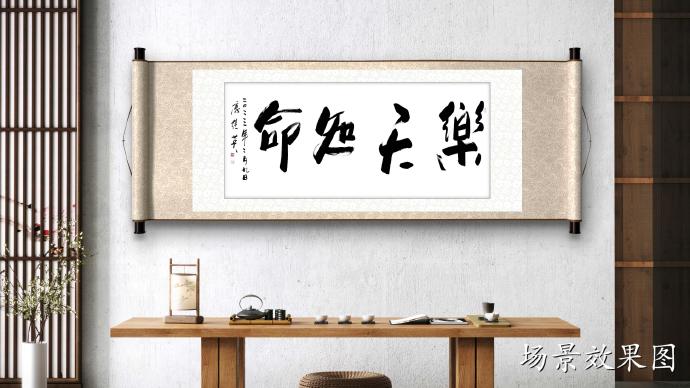 樂天知命
二〇二三年二月九日
场景效果图